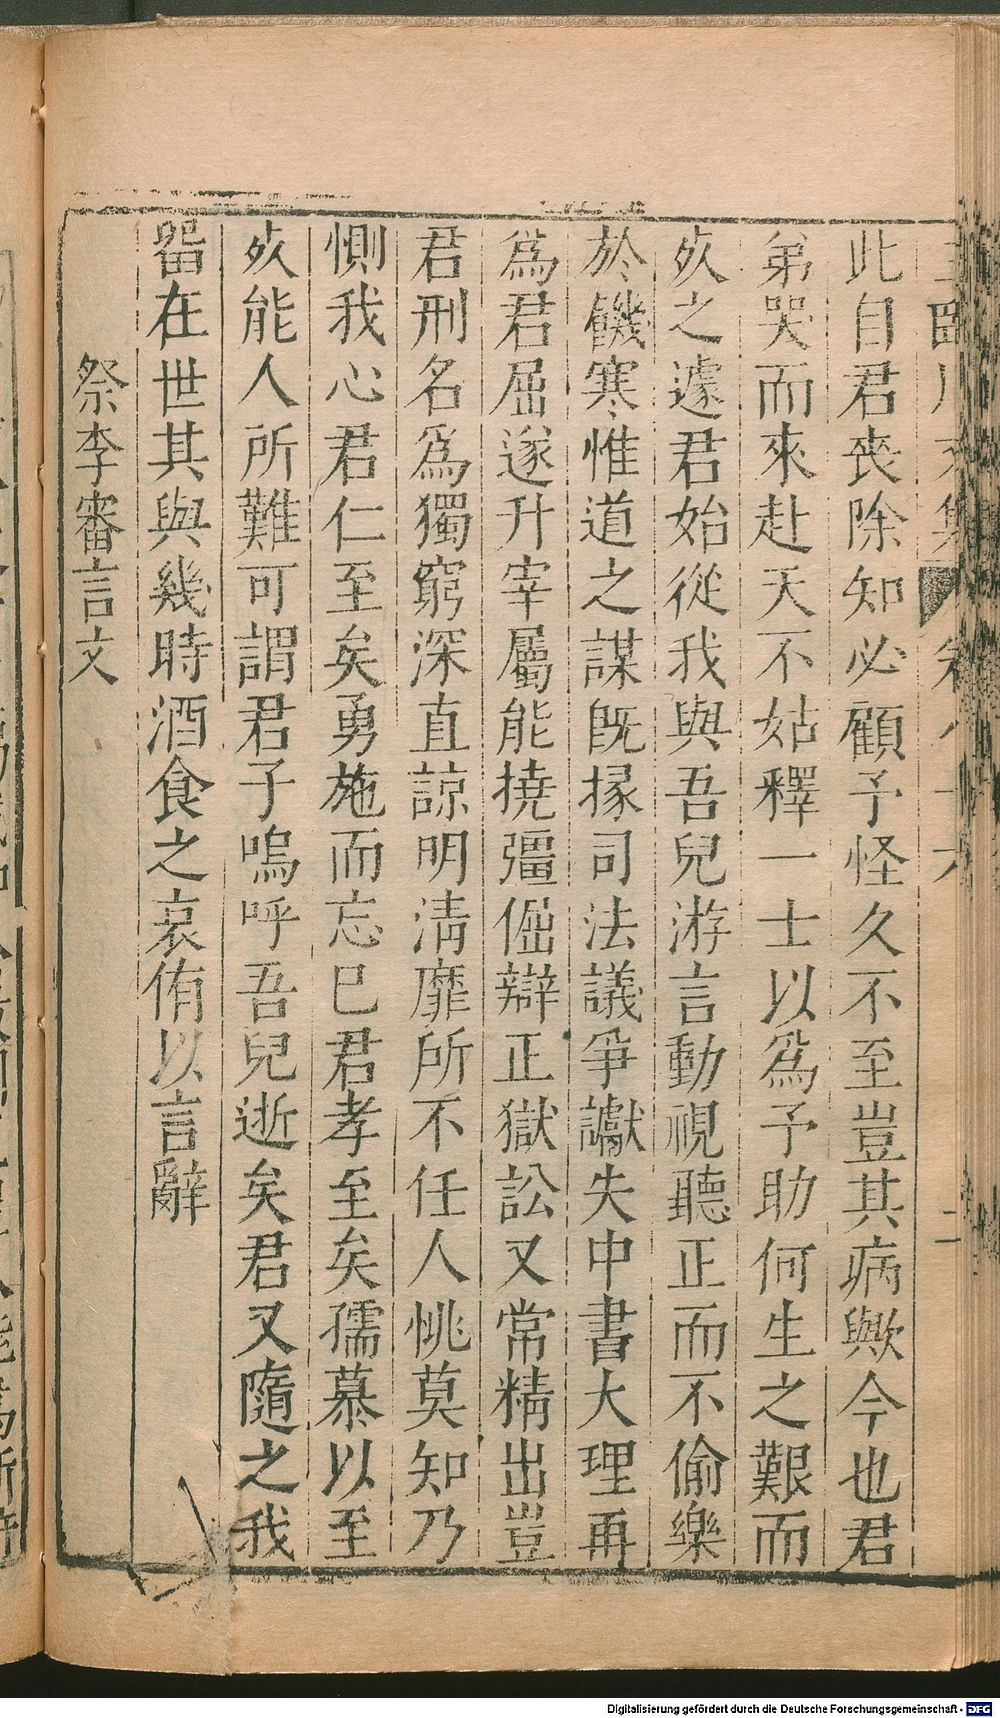 此自君喪除知必顧予怪久不至豈其病歟今也君
弟哭而來赴天不姑釋一士以爲予助何生之艱而
死之遽君始從我與吾兒游言動視聽正而不偷樂
於饑寒惟道之謀旣掾司法議爭讞失中書大理再
爲君屈遂升宰屬能撓彊倔辯正獄訟又常精出豈
君刑名爲獨窮深直諒明清靡所不任人恌莫知乃
惻我心君仁至矣勇施而忘巳君孝至矣孺慕以至
死能人所難可謂君子嗚呼吾兒逝矣君又隨之我
畱在世其與幾時酒食之哀侑以言辭
祭李審言文
Digitalisierung gefördert durch die Deutsche Forschungsgemeinschaft - DFG